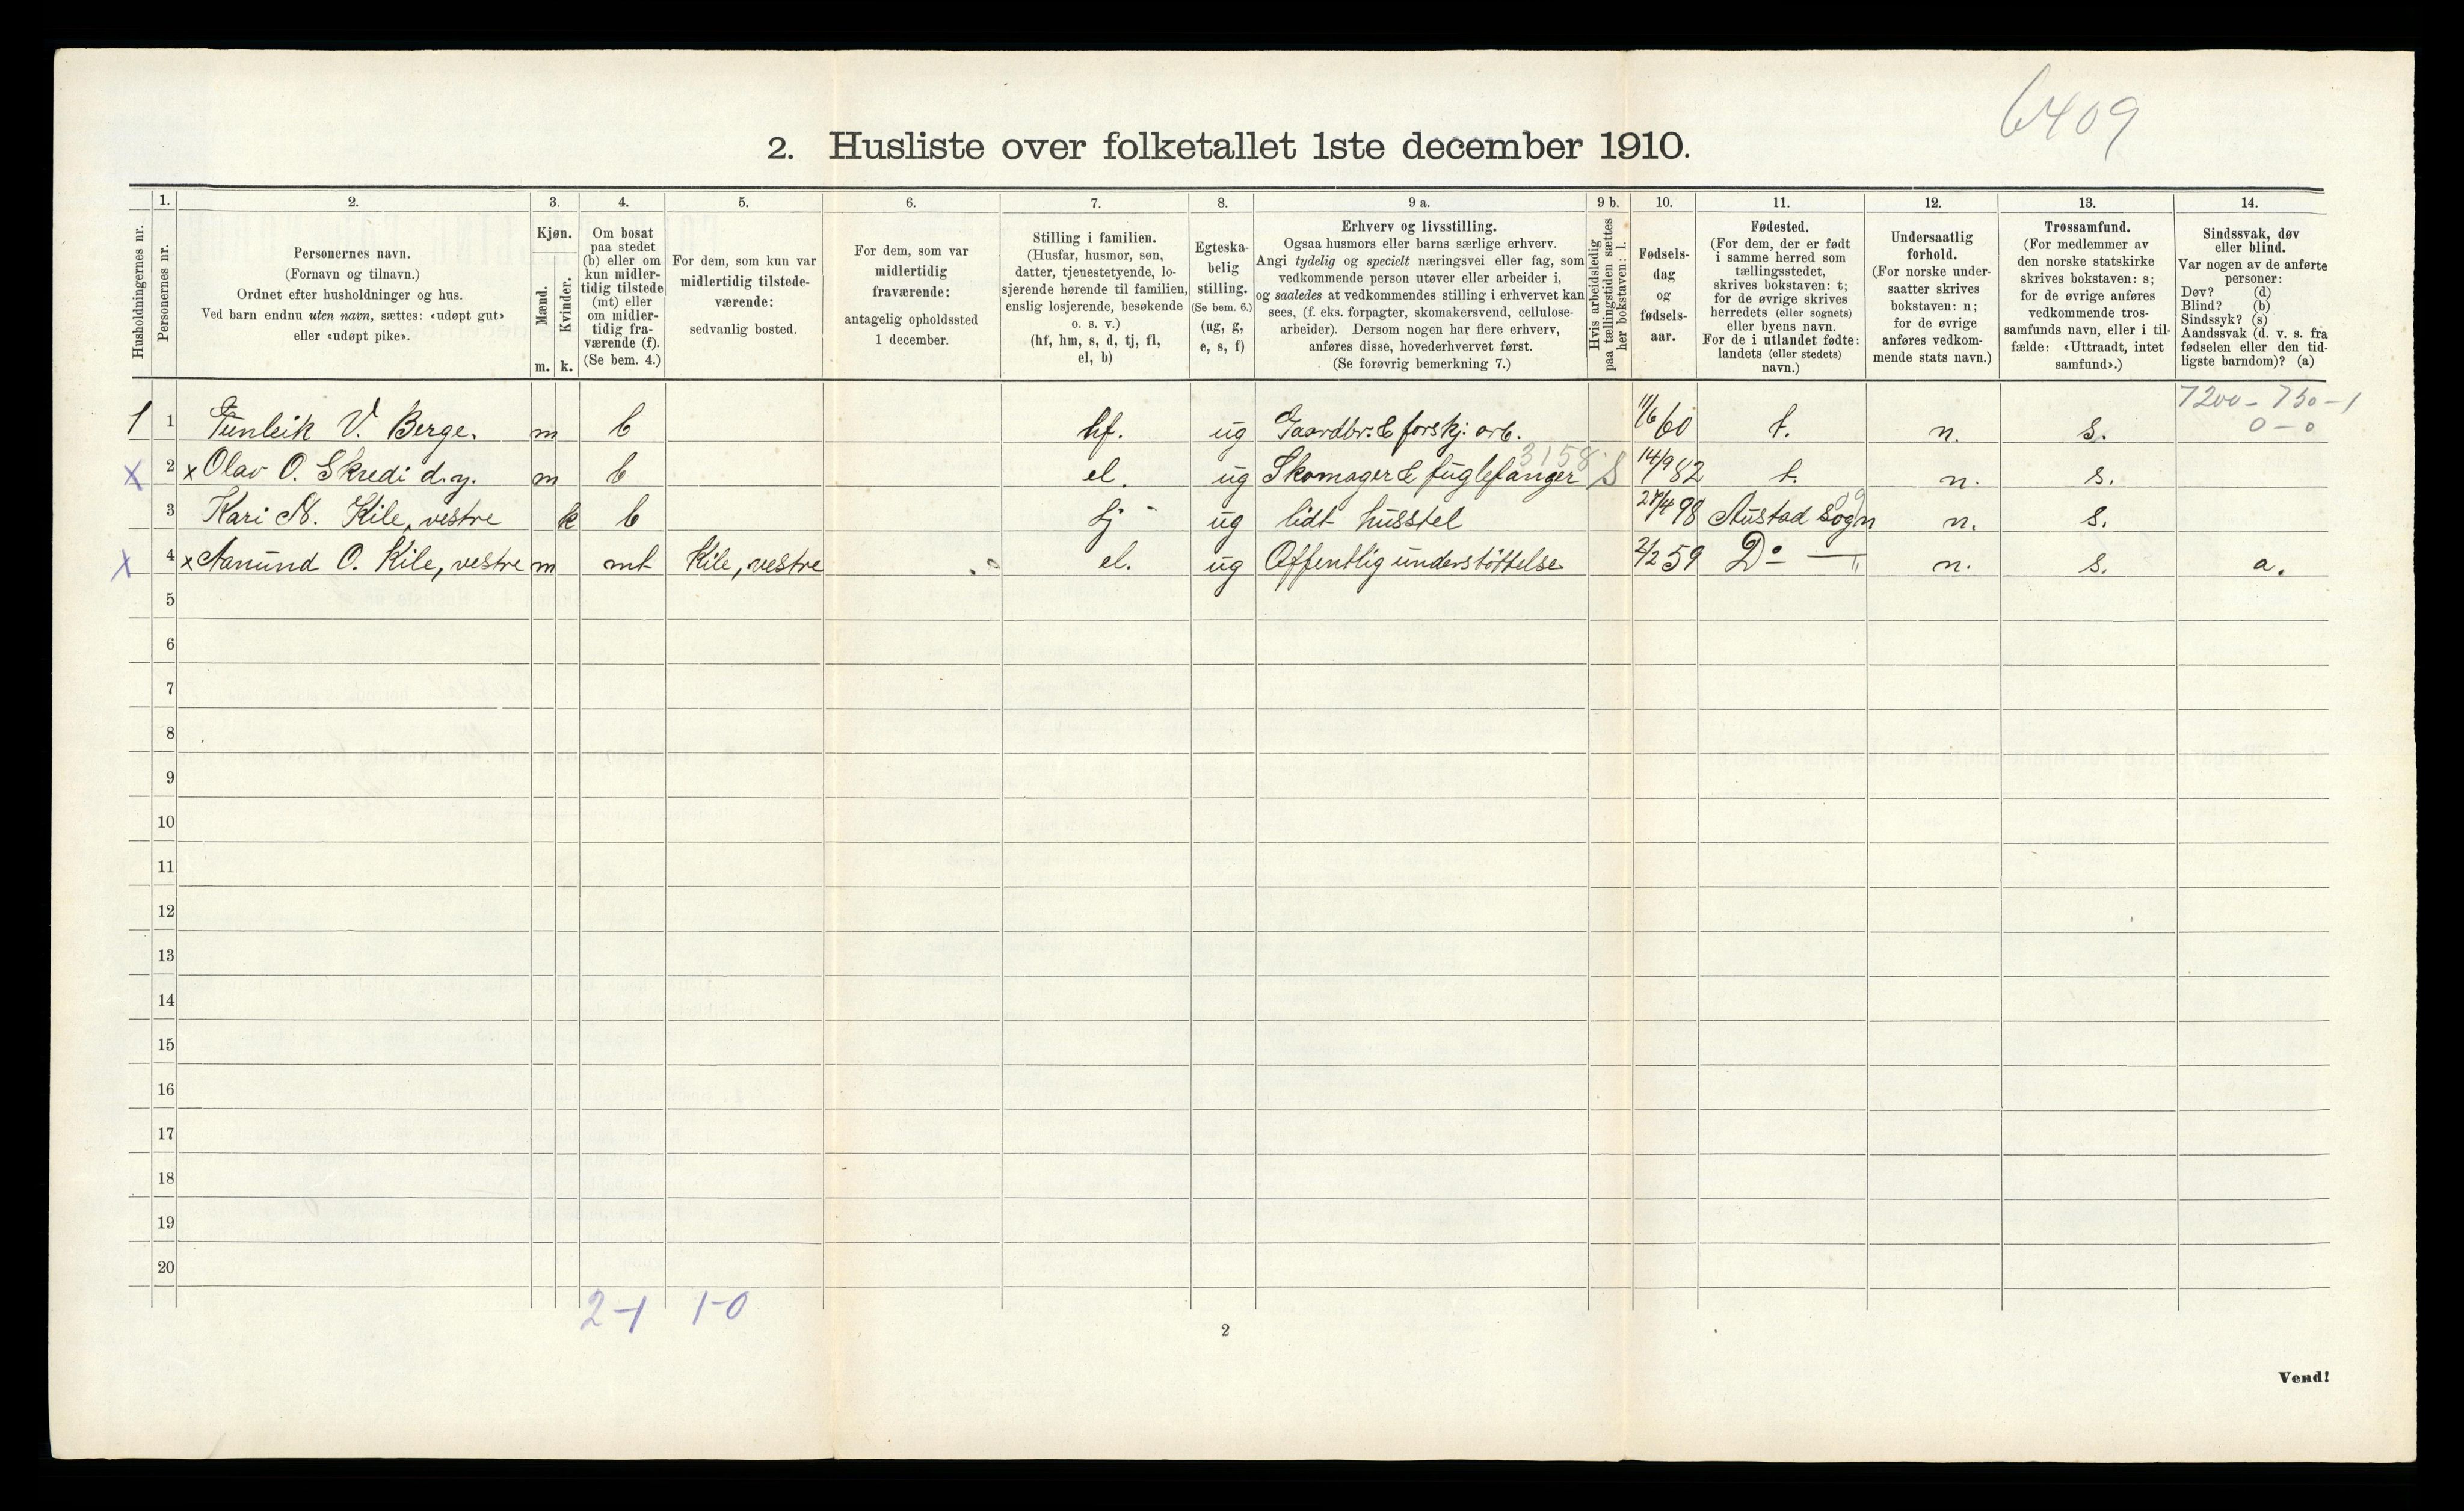 6409
2. Husliste over folketallet 1ste december 1910.
Husholdningernes nr.
1.
Personernes nr.
2.
Personernes navn.
(Fornavn og tilnavn.)
Ordnet efter husholdninger og hus.
Ved barn endnu uten navn, sættes: «udøpt gut»
eller «udøpt pike».
3.
Kjøn.
Mænd.
Kvinder.
m. k.
4.
Om bosat
paa stedet
(b) eller om
kun midler-
tidig tilstede
(mt) eller
om midler-
tidig fra-
værende (f).
(Se bem. 4.)
5.
For dem, som kun var
midlertidig tilstede-
værende:
sedvanlig bosted.
6.
For dem, som var
midlertidig
fraværende:
antagelig opholdssted
1 december.
7.
Stilling i familien.
(Husfar, husmor, søn,
datter, tjenestetyende, lo-
sjerende hørende til familien,
enslig losjerende, besøkende
o. s. v.)
(hf, hm, s, d, tj, fl,
el, b)
8.
Egteska-
belig
stilling.
(Se bem. 6.)
(ug, g,
e, s, f)
9 a.
Erhverv og livsstilling.
Ogsaa husmors eller barns særlige erhverv.
Angi tydelig og specielt næringsvei eller fag, som
vedkommende person utøver eller arbeider i,
og saaledes at vedkommendes stilling i erhvervet kan
sees, (f. eks. forpagter, skomakersvend, cellulose-
arbeider). Dersom nogen har flere erhverv,
anføres disse, hovederhvervet først.
(Se forøvrig bemerkning 7.)
9 b.
Hvis arbeidsledig
paa tællingstiden sættes
her bokstaven: l.
10.
Fødsels-
dag
og
fødsels-
aar.
11.
Fødested.
(For dem, der er født
i samme herred som
tællingsstedet,
skrives bokstaven: t;
for de øvrige skrives
herredets (eller sognets)
eller byens navn.
For de i utlandet fødte:
landets (eller stedets)
navn.)
12.
Undersaatlig
forhold.
(For norske under-
saatter skrives
bokstaven: n;
for de øvrige
anføres vedkom-
mende stats navn.)
13.
Trossamfund.
(For medlemmer av
den norske statskirke
skrives bokstaven: s;
for de øvrige anføres
vedkommende tros-
samfunds navn, eller i til-
fælde: «Uttraadt, intet
samfund».)
14.
Sindssvak, døv
eller blind.
Var nogen av de anførte
personer:
Døv? (d)
Blind? (b)
Sindssyk? (s)
Aandssvak (d. v. s. fra
fødselen eller den tid-
ligste barndom)? (a)
7200 - 750 - 1
0 - 0
1 1 Gunleik V. Berge. m b hf. ug Gaardbr. & forskj. arb. 11/6 60 t. n. s.
3158
x 2 x Olav O. Skredi d.y. m b el. ug Skomager & fuglefanger S 14/9 82 t. n. s.
3 Kari N. Kile, vestre k b tj ug lidt husstel 27/4 98 Austad sogn n. s.
x 4 x Aanund O. Kile, vestre m mt Kile, vestre el. ug Offentlig understøttelse 2/2 59 Do — " n. s. a.
5
6
7
8
9
10
11
12
13
14
15
16
17
18
19
20
2-1 1-0
2
Vend!